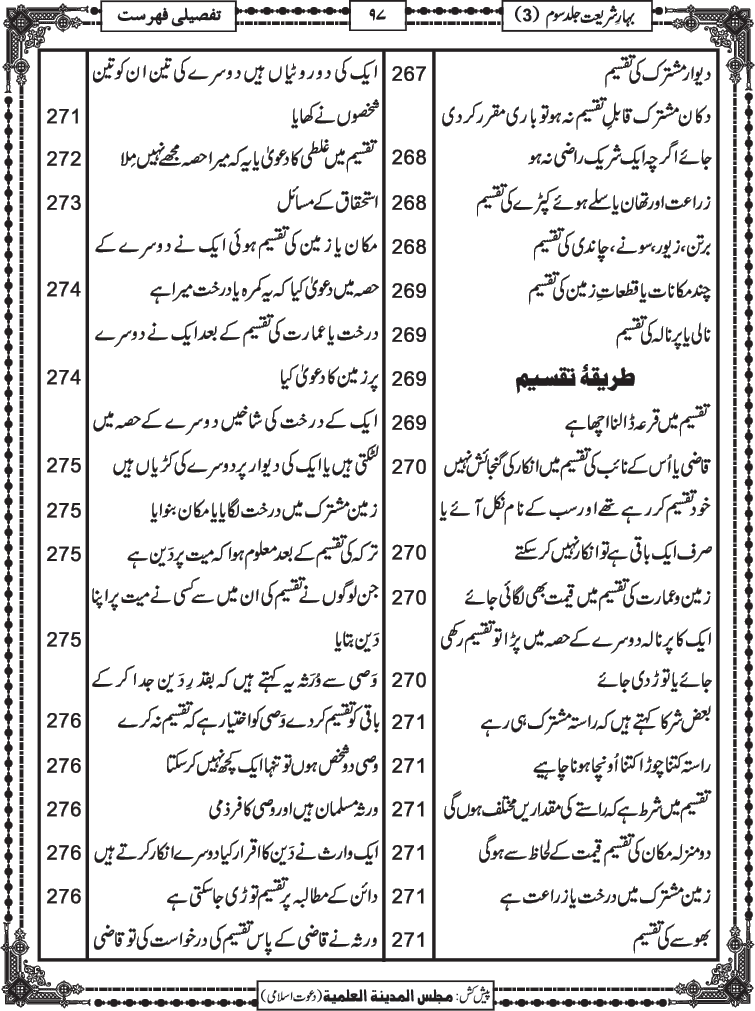 بہارِ شریعت جلد سوم (3)
۹۷
تفصیلی فہرست
دیوار مشترک کی تقسیم 267
دکان مشترک قابلِ تقسیم نہ ہو تو باری مقرر کر دی
جائے اگرچہ ایک شریک راضی نہ ہو 268
زراعت اور تھان یا سلے ہوئے کپڑے کی تقسیم 268
برتن، زیور، سونے، چاندی کی تقسیم 268
چند مکانات یا قطعاتِ زمین کی تقسیم 269
نالی یا پرنالہ کی تقسیم 269
طریقۂ تقسیم 269
تقسیم میں قرعہ ڈالنا اچھا ہے 269
قاضی یا اُس کے نائب کی تقسیم میں انکار کی گنجائش نہیں 270
خود تقسیم کر رہے تھے اور سب کے نام نکل آئے یا
صرف ایک باقی ہے تو انکار نہیں کر سکتے 270
زمین و عمارت کی تقسیم میں قیمت بھی لگائی جائے 270
ایک کا پرنالہ دوسرے کے حصہ میں پڑا تو تقسیم رکھی
جائے یا توڑ دی جائے 270
بعض شرکا کہتے ہیں کہ راستہ مشترک ہی رہے 271
راستہ کتنا چوڑا کتنا اُونچا ہونا چاہیے 271
تقسیم میں شرط ہے کہ راستے کی مقداریں مختلف ہوں گی 271
دو منزلہ مکان کی تقسیم قیمت کے لحاظ سے ہوگی 271
زمین مشترک میں درخت یا زراعت ہے 271
بھوسے کی تقسیم 271
ایک کی دو روٹیاں ہیں دوسرے کی تین ان کو تین
شخصوں نے کھایا 271
تقسیم میں غلطی کا دعویٰ یا یہ کہ میرا حصہ مجھے نہیں مِلا 272
استحقاق کے مسائل 273
مکان یا زمین کی تقسیم ہوئی ایک نے دوسرے کے
حصہ میں دعویٰ کیا کہ یہ کمرہ یا درخت میرا ہے 274
درخت یا عمارت کی تقسیم کے بعد ایک نے دوسرے
پر زمین کا دعویٰ کیا 274
ایک کے درخت کی شاخیں دوسرے کے حصہ میں
لٹکتی ہیں یا ایک کی دیوار پر دوسرے کی کڑیاں ہیں 275
زمین مشترک میں درخت لگایا یا مکان بنوایا 275
ترکہ کی تقسیم کے بعد معلوم ہوا کہ میت پر دَین ہے 275
جن لوگوں نے تقسیم کی ان میں سے کسی نے میت پر اپنا
دَین بتایا 275
وَصی سے وُرَثہ یہ کہتے ہیں کہ بقدرِ دَین جدا کر کے
باقی کو تقسیم کر دے وَصی کو اختیار ہے کہ تقسیم نہ کرے 276
وصی دو شخص ہوں تو تنہا ایک کچھ نہیں کر سکتا 276
ورثہ مسلمان ہیں اور وصی کافر ذمی 276
ایک وارث نے دَین کا اقرار کیا دوسرے انکار کرتے ہیں 276
دائن کے مطالبہ پر تقسیم توڑی جا سکتی ہے 276
ورثہ نے قاضی کے پاس تقسیم کی درخواست کی تو قاضی
پیش کش: مجلس المدینة العلمیة (دعوت اسلامی)